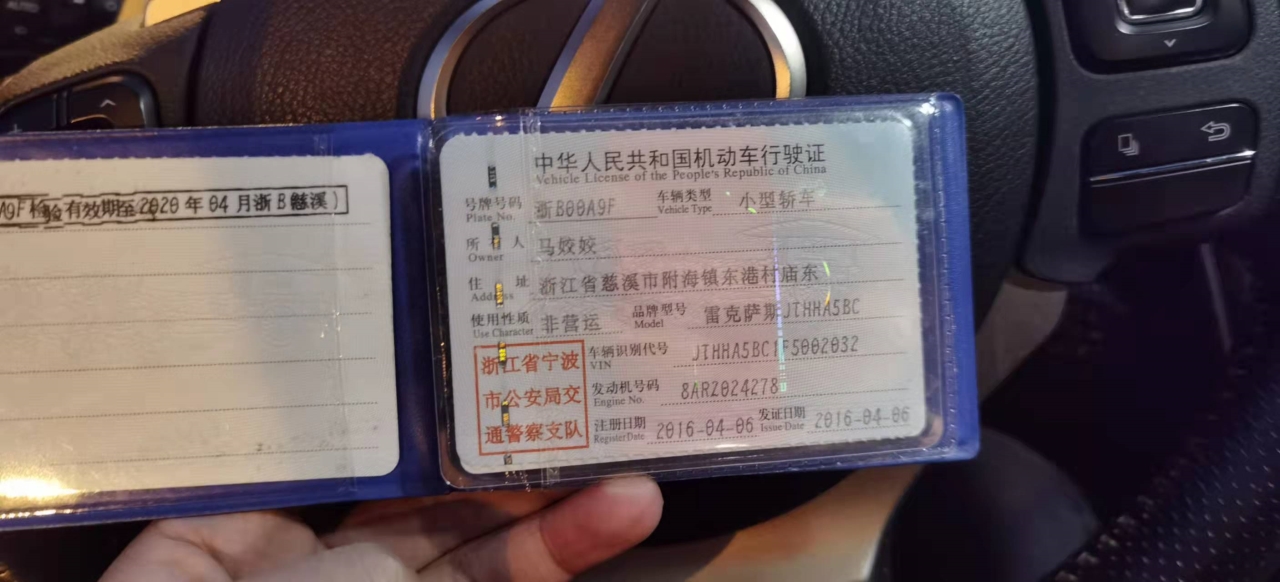 A9F检验有效期至2020年04月浙B慈溪)
中华人民共和国机动车行驶证
Vehicle License of the People's Republic of China
号牌号码 浙B00A9F 车辆类型 小型轿车
Plate No. Vehicle Type
所有人 马姣姣
Owner
住址 浙江省慈溪市附海镇东港村庙东
Address
使用性质 非营运 品牌型号 雷克萨斯JTHHA5BC
Use Character Model
浙江省宁波
市公安局交
通警察支队
车辆识别代号 JTHHA5BC1F5002032
VIN
发动机号码 8AR2024278
Engine No.
注册日期 2016-04-06 发证日期 2016-04-06
Register Date Issue Date